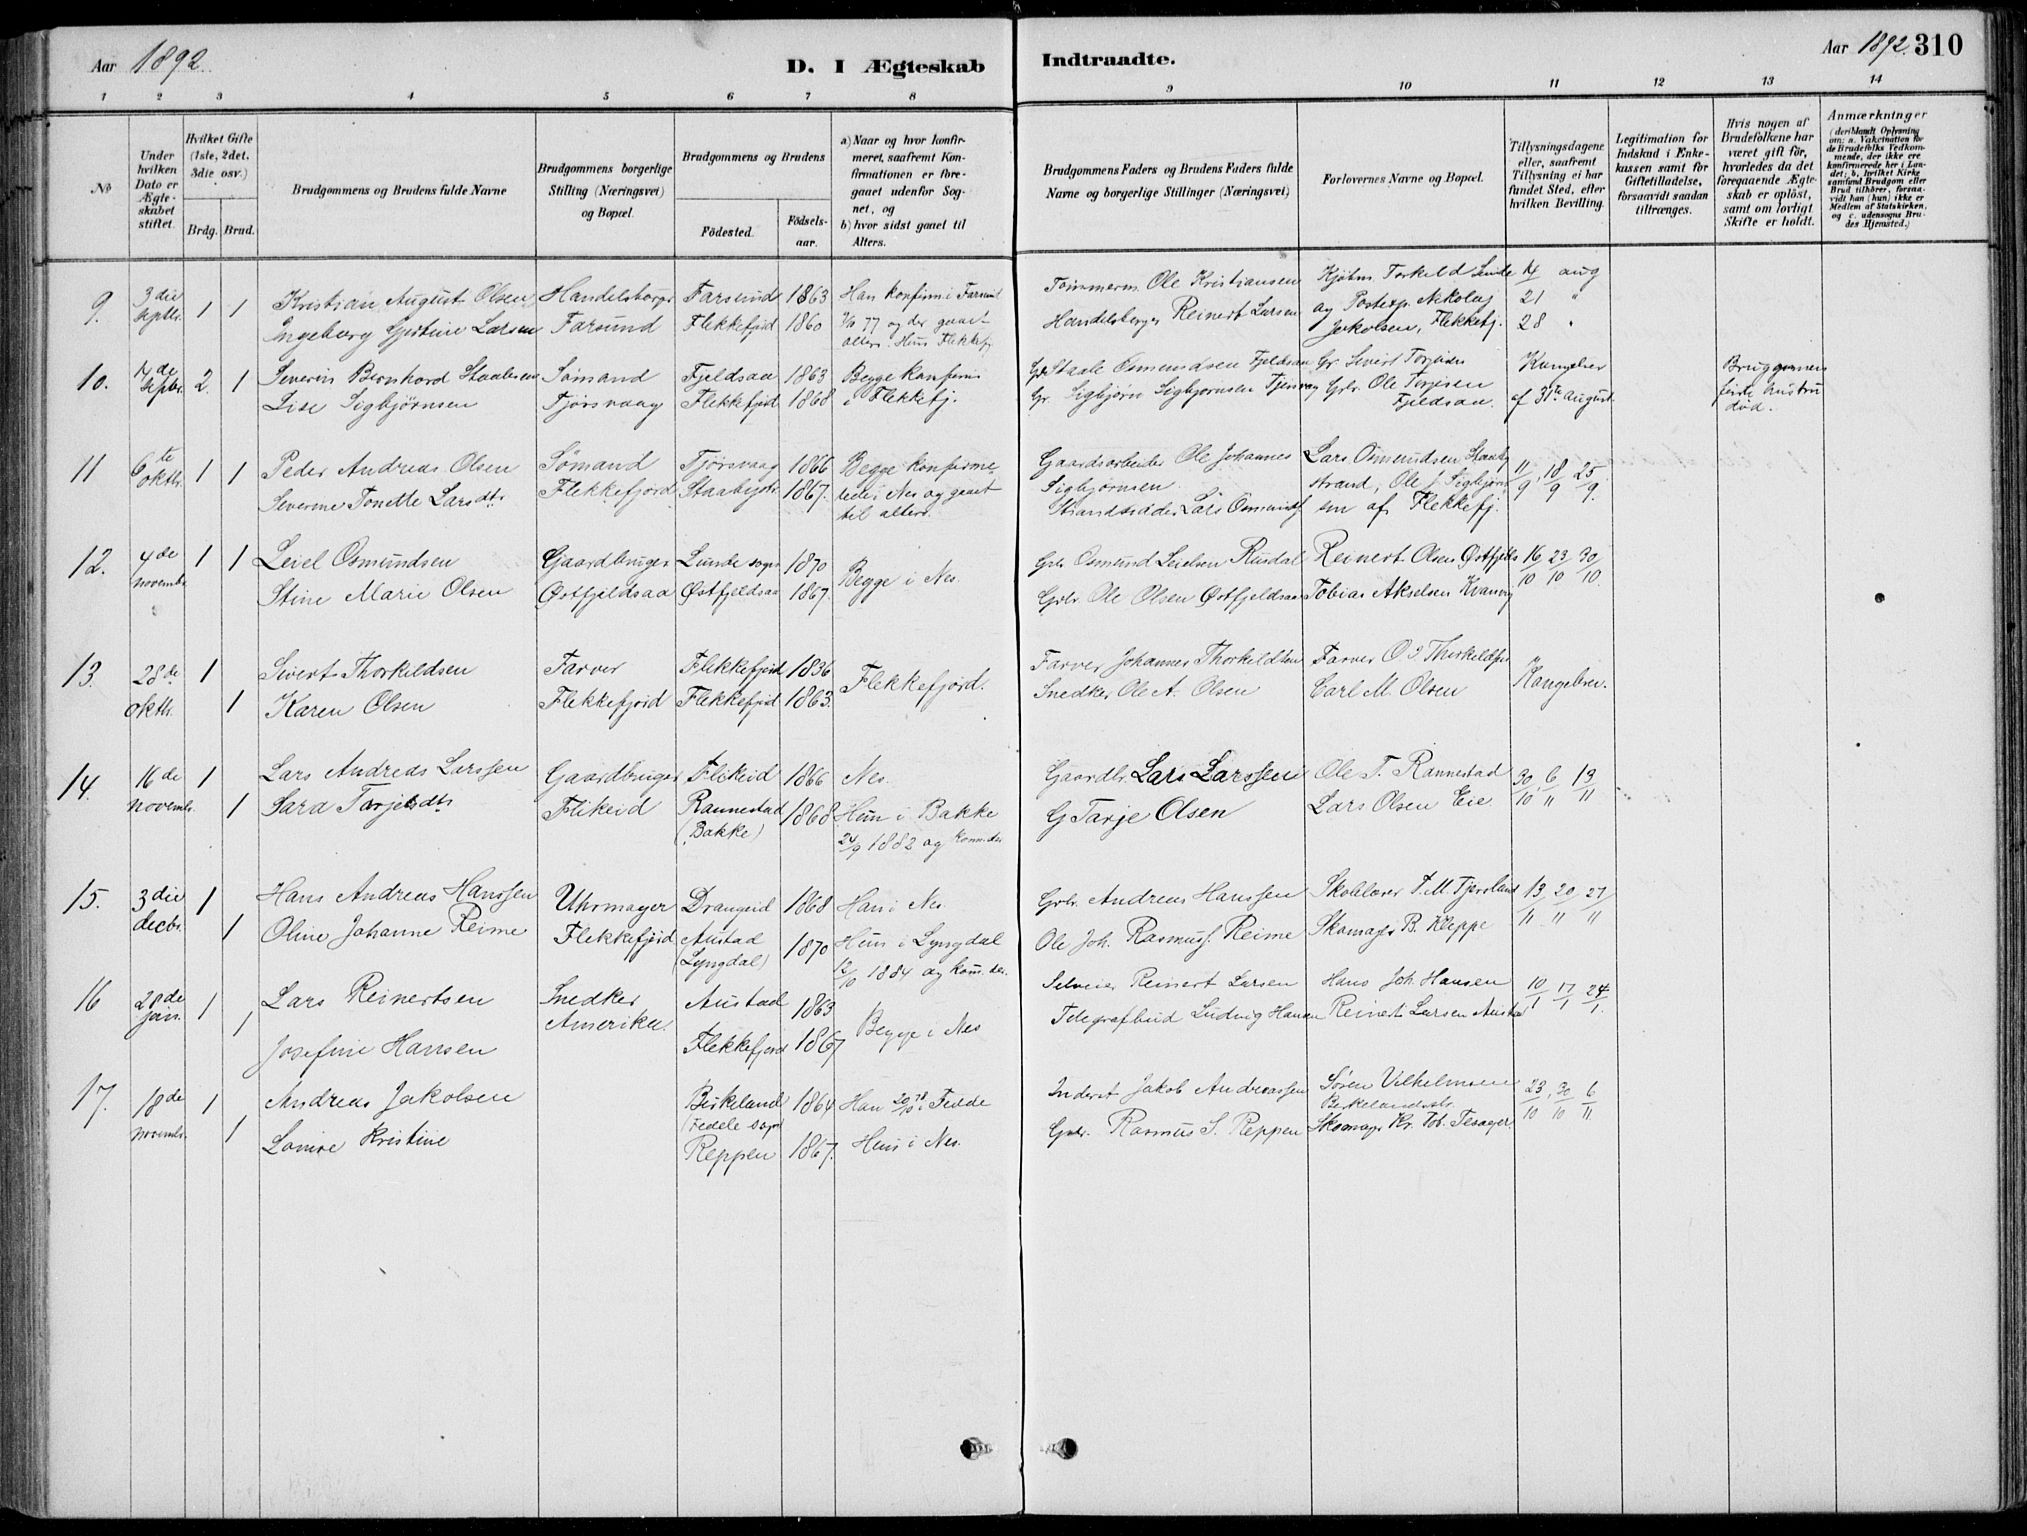 Aar 1892.
D. I Ægteskab
Indtraadte.
Aar 1892. 310
1 2 3 4 5 6 7 8 9 10 11 12 13 14
No
Under hvilken Dato er Ægteskabet stiftet.
Hvilket Gifte (1ste, 2det, 3die osv.)
Brdg. Brud.
Brudgommens og Brudens fulde Navne
Brudgommens borgerlige Stilling (Næringsvei) og Bopæl.
Brudgommens og Brudens
Födested.
Födselsaar.
a) Naar og hvor konfirmeret, saafremt Konfirmationen er foregaaet udenfor Sognet, og
b) hvor sidst gaaet til Alters.
Brudgommens Faders og Brudens Faders fulde Navne og borgerlige Stillinger (Næringsvei)
Forlovernes Navne og Bopæl.
Tillysningsdagene eller, saafremt Tillysning ei har fundet Sted, efter hvilken Bevilling.
Legitimation for Indskud i Enkekassen samt for Giftetilladelse, forsaavidt saadan tiltrænges.
Hvis nogen af Brudefolkene har været gift för, hvorledes da det foregaaende Ægteskab er oplöst, samt om lovligt Skifte er holdt.
Anmærkninger
(deriblandt Oplysning om: a. Vakcination for de Brudefolks Vedkommende, der ikke ere konfirmerede her i Landet; b. hvilket Kirkesamfund Brudgom eller Brud tilhörer, forsaavidt han (hun) ikke er Medlem af Statskirken, og c. udensogns Brudes Hjemsted.)
9. 3die septbr. 1 1 Kristian August Olsen Handelsborger Farsund 1863 Han konfirm i Farsund Tømmerm. Ole Kristiansen Kjøbm. Torkeld Sunde 14 aug
Ingeborg Larsen Farsund Flekkefjord 1860 77 og der gaaet Handelsborger Reinert Larsen og Postexp. Nikolaj 21 "
alters. Hun Flekkefj. Jakobsen, Flekkefj. 28 "
10. 14de septbr. 2. 1 Severin Bernhard Staalesen Sømand Fjeldsaa 1863 Begge konfirm Staale Osmundsen Fjeldsaa Gr. Sivert Torjesen Kongebrev Bruggommens
Lise Sigbjørnsen Tjørsvaag Flekkefjord 1868 i Flekkefj. Gr. Sigbjørn Sigbjørnsen Tjørsvaag Gbr. Ole Torjesen Fjeldsaa. af 31te august første hustru død.
11 6te oktbr. 1 1 Peder Andreas Olsen Sømand Tjørsvaag 1866 Begge konfirme Gaardsarbeider Ole Johannes Lars Osmundsen 11/9, 18/9 25/9.
Severine Tonette Larsdtr Flekkefjord 1867. rede i Nes og gaaet Sigbjørnsen strand, Ole J. Sigbjørn
til alters. Strandsidder Lars Osmunds. sen af Flekkefj.
12. 4de novembr 1 1 Leiel Osmundsen Gaardbruger Lunde sogn 1870 Begge i Nes. Gbr. Osmund Leielsen Rusdal Reinert Olsen Østfjelds 16/10 23/10 30/10.
Stine Marie Olsen Østfjeldsaa Østfjeldsaa 1867. Gbr. Ole Olsen Østfjeldsaa Tobias Akselsen
13. 28de oktbr. 1 Sivert Thorkildsen Farver Flekkefjord 1836 Flekkefjord. Farver Johannes Thorkildsen Farver O S Thorkildsen Kongebrev.
1 Karen Olsen Flekkefjord Flekkefjord 1863. Snedker Ole A. Olsen Carl M. Olsen
14. 16de novembr. 1 Lars Andreas Larssen Gaardbruger Flikeid 1866 Nes. Gaardbr. Lars Larssen Ole T. Rannestad 30/10, 6/11 13/11
1 Sara Tarjesdtr Flikeid Rannestad (Bakke) 1868 Hun i Bakke G Tarje Olsen Lars Olsen Eie.
24/9 1882 og
15. 3die decbr. 1 Hans Andreas Hanssen Uhrmager Drangeid 1868 Han i Nes. Gbr. Andreas Hanssen Skolelærer T. M. 13/11 20/11 27/11
1 Oline Johanne Reime Flekkefjord Austad (Lyngdal) 1870 Hun i Lyngdal Ole Joh. Rasmuss. Reime Skomager B. Kleppe
12/10 1884 og kom. der.
16 28de jan. 1 Lars Reinertsen Snedker Austad 1863 Begge i Nes Selveier Reinert Larsen Hans Joh. Hansen 10/1 17/1 24/1.
1 Josefine Hansen Amerika. Flekkefjord 1867 Telegrafbud Ludvig Hansen Reinert Larsen Austad
17. 18de novembr. 1 Andreas Jakobsen Birkeland (Fedde sogn) 1864 Han 20/10 78 i Fedde Inderst Jakob Andreassen Søren Vilhelmsen 23/10, 30/10 6/11
Birkeland
1 Lovise Kristine Reppen 1867. Hun i Nes. Gbr. Rasmus S. Reppen Skomager Kr. Tob. Tesager.